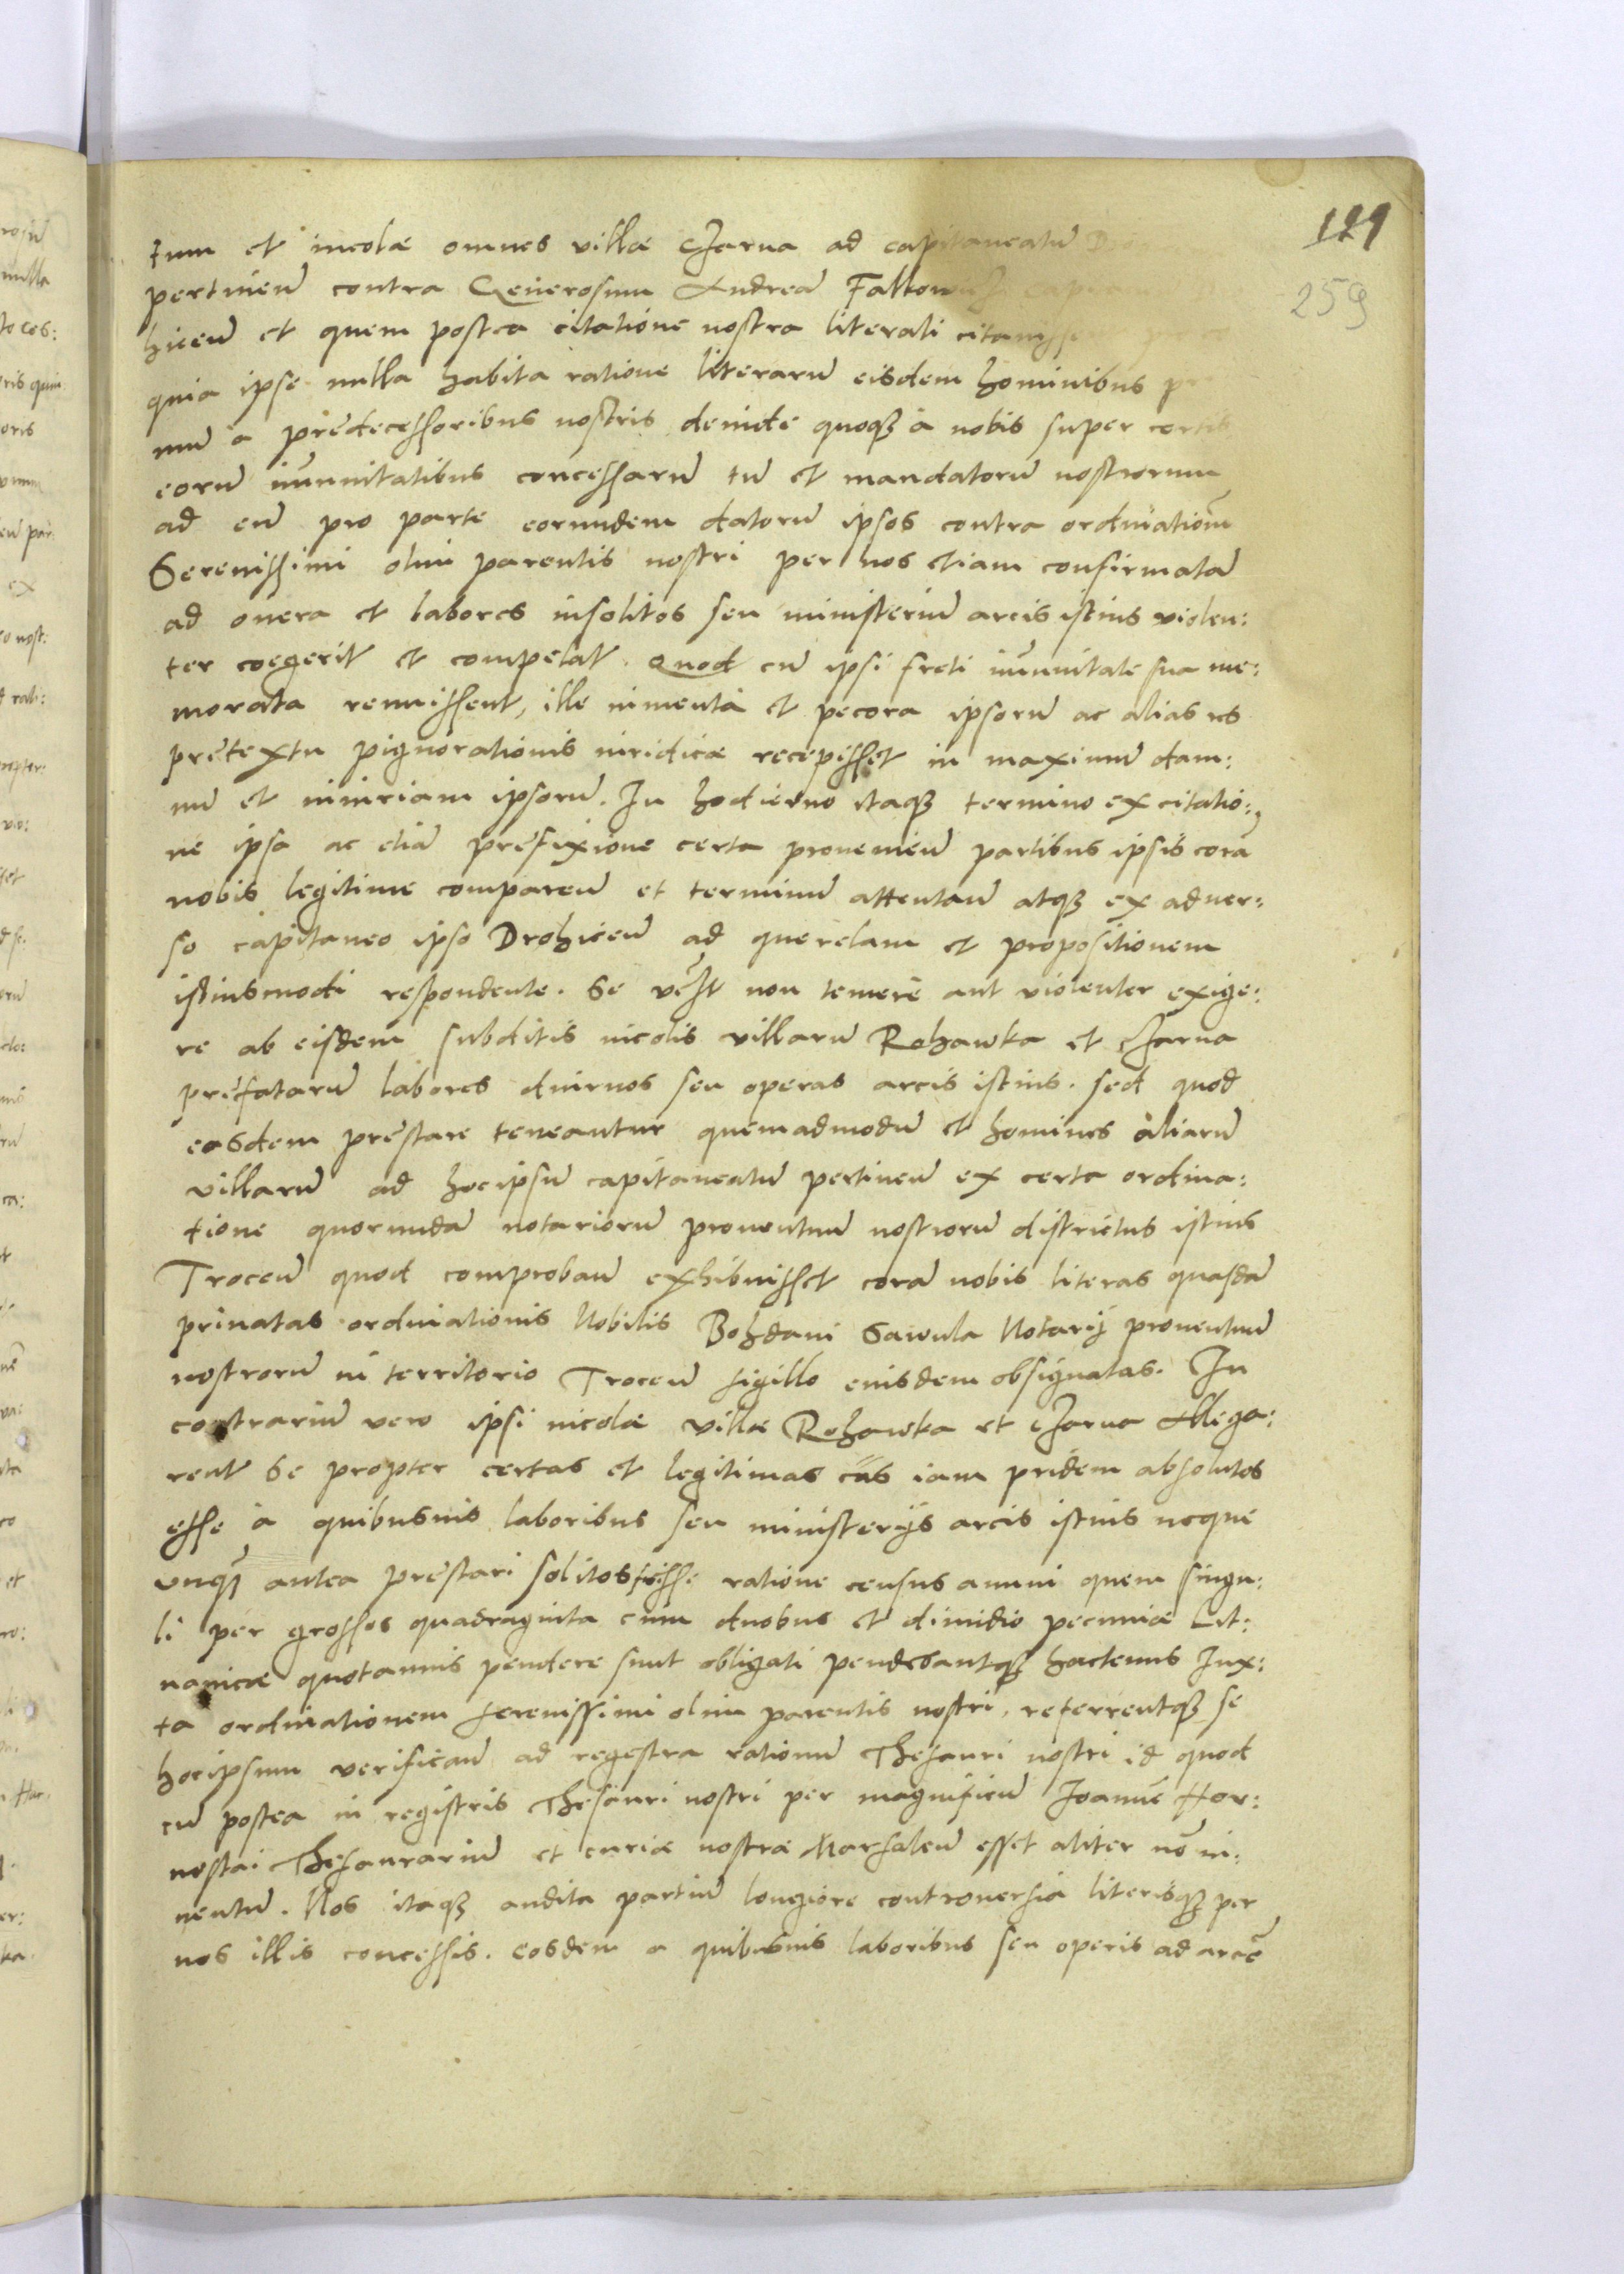 129
259
tum et incolæ omnes villæ Czarna ad capitaneatū D
pertineñ contra Generosum Andreā Falkowicz cap
hiceñ et quem postea citatione nostra literali citauisse
quia ipse nulla habita ratione literarū eisdem hominibus
mū a prędecessoribus nostris deinde quoqꝫ à nobis super certis
eorū im̄unitatibus concessarū tū et mandatorū nostrorum
ad eū pro parte eorundem datorū ipsos contra ordinationē
Serenissimi olim parentis nostri per nos etiam confirmatā
ad onera et labores insolitos seu ministeriū arcis istius violen:
ter coegerit et compelat. Quod cū ipsi freti im̄unitate sua me:
morata renuissent, ille iumenta et pecora ipsorū ac alias res
prętextu pignorationis iuridicæ recepisset in maximū dam:
nū et iniuriam ipsorū. In hodierno itaqꝫ termino ex citatio:
ne ipsa ac etiā pręfixione certa prouenieñ partibus ipsis corā
nobis legitime compareñ et terminū attentañ atqꝫ ex aduer:
so capitaneo ipso Drohiceñ ad querelam et propositionem
istiusmodi respondente. Se vcꝫt non temerè aut violenter exige:
re ab eisdem subditis incolis villarū Rohawka et Czarna
pręfatarū labores diurnos seu operas arcis istius. sed quod
easdem pręstare teneantur quemadmodū et homines aliarū
villarū ad hoc ipsū capitaneatū pertineñ ex certa ordina:
tione quorundā notariorū prouentuū nostrorū districtus istius
Troceñ quod comprobañ exhibuisset corā nobis literas quasdā
priuatas ordinationis Nobilis Bohdani Sawula Notarij prouentuū
nostrorū in territorio Troceñ sigillo eiusdem obsignatas. In
contrariū vero ipsi incolæ villæ Rohawka et Czarna Allega:
rent Se propter certas et legitimas cās iam pridem absolutos
esse à quibusuis laboribus seu ministerijs arcis istius neque
vnqꝫ antea pręstari solitos fuisse ratione census annui quem singu:
li per grossos quadraginta cum duobus et dimidio pecuniæ Lit:
uanicæ quotannis pendere sunt obligati pendebantqꝫ hactenus Iux:
ta ordinationem serenissimi olim parentis nostri, referrentqꝫ se
hocipsum verificañ ad regestra rationū Thesauri nostri id quod
cū postea in registris Thesauri nostri per magnificū Joannē Hor:
nostai Thesaurariū et curiæ nostræ Marsaleū esset aliter nō in:
uentū. Nos itaqꝫ audita partiū longiore controuersia literisqꝫ per
nos illis concessis. eosdem a quibusuis laboribus seu operis ad arcē